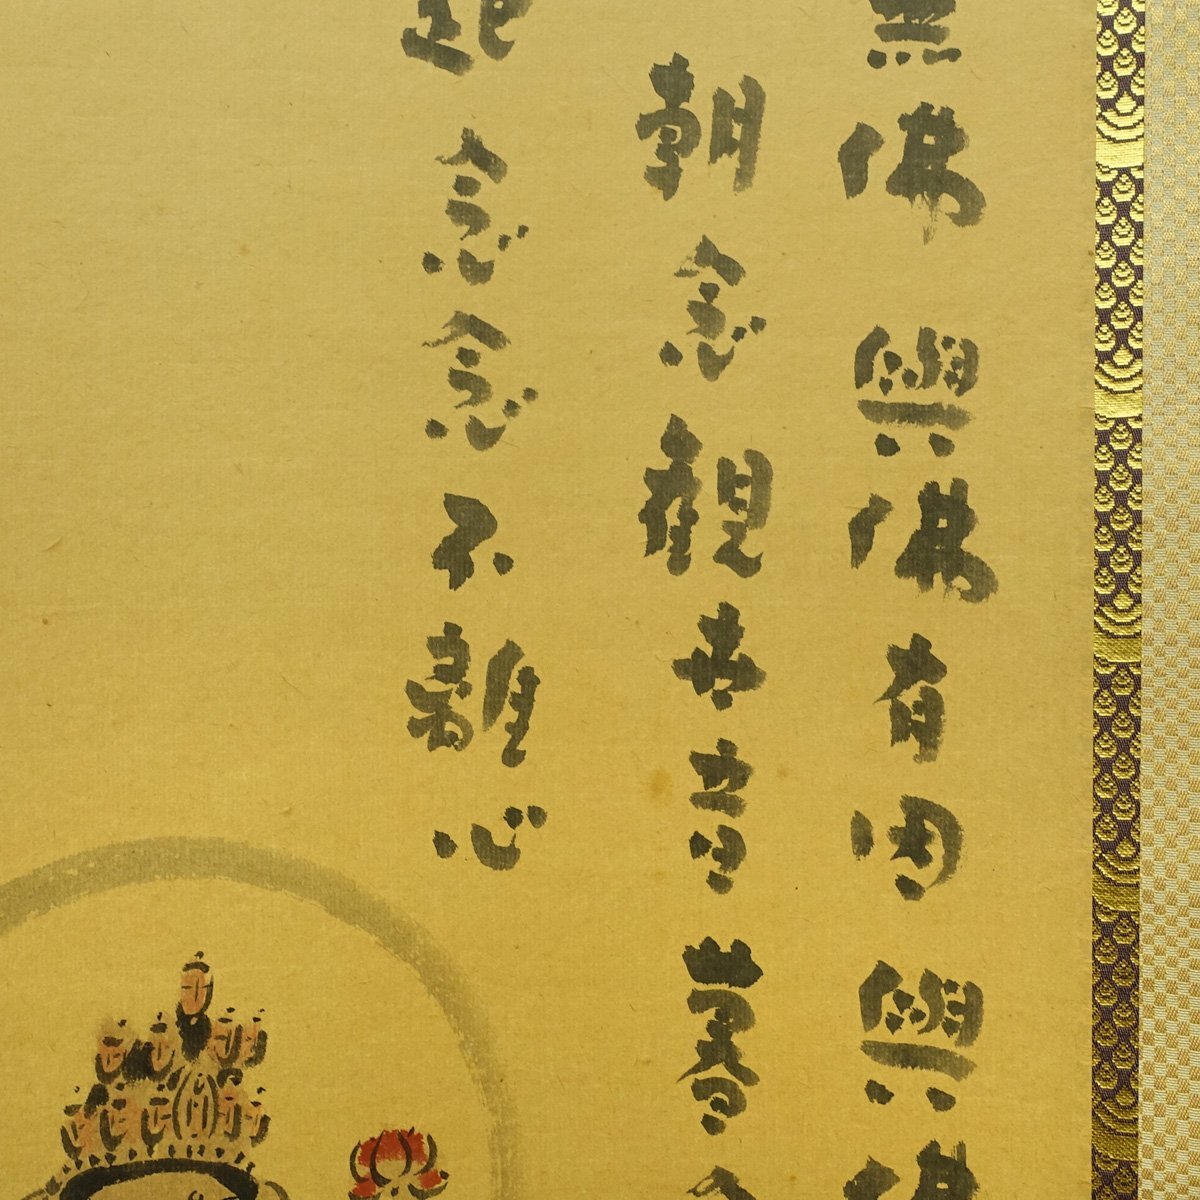 無佛與佛有因與佛
朝念觀世音暮念
起念念不離心